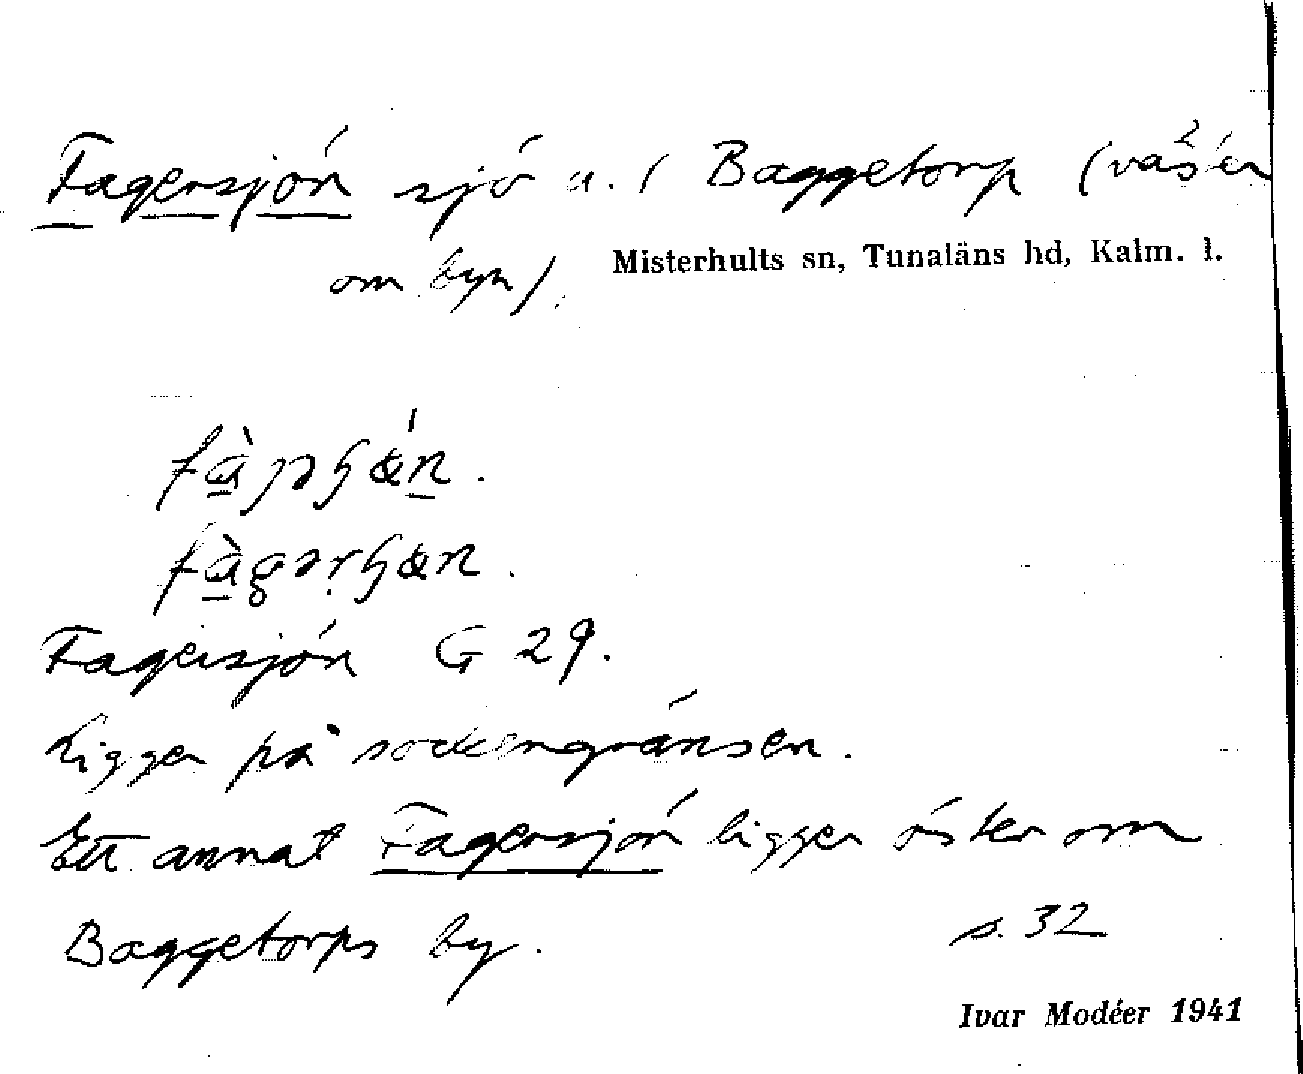 Fagersjön sjö u. / Baggetorp (väster
om byn).
Misterhults sn, Tunaläns hd, Kalm. l.
Fagersjön G 29.
Ligger på sockengränsen.
Ett annat Fagersjön ligger öster om
Baggetorps by.
s. 32
Ivar Modéer 1941